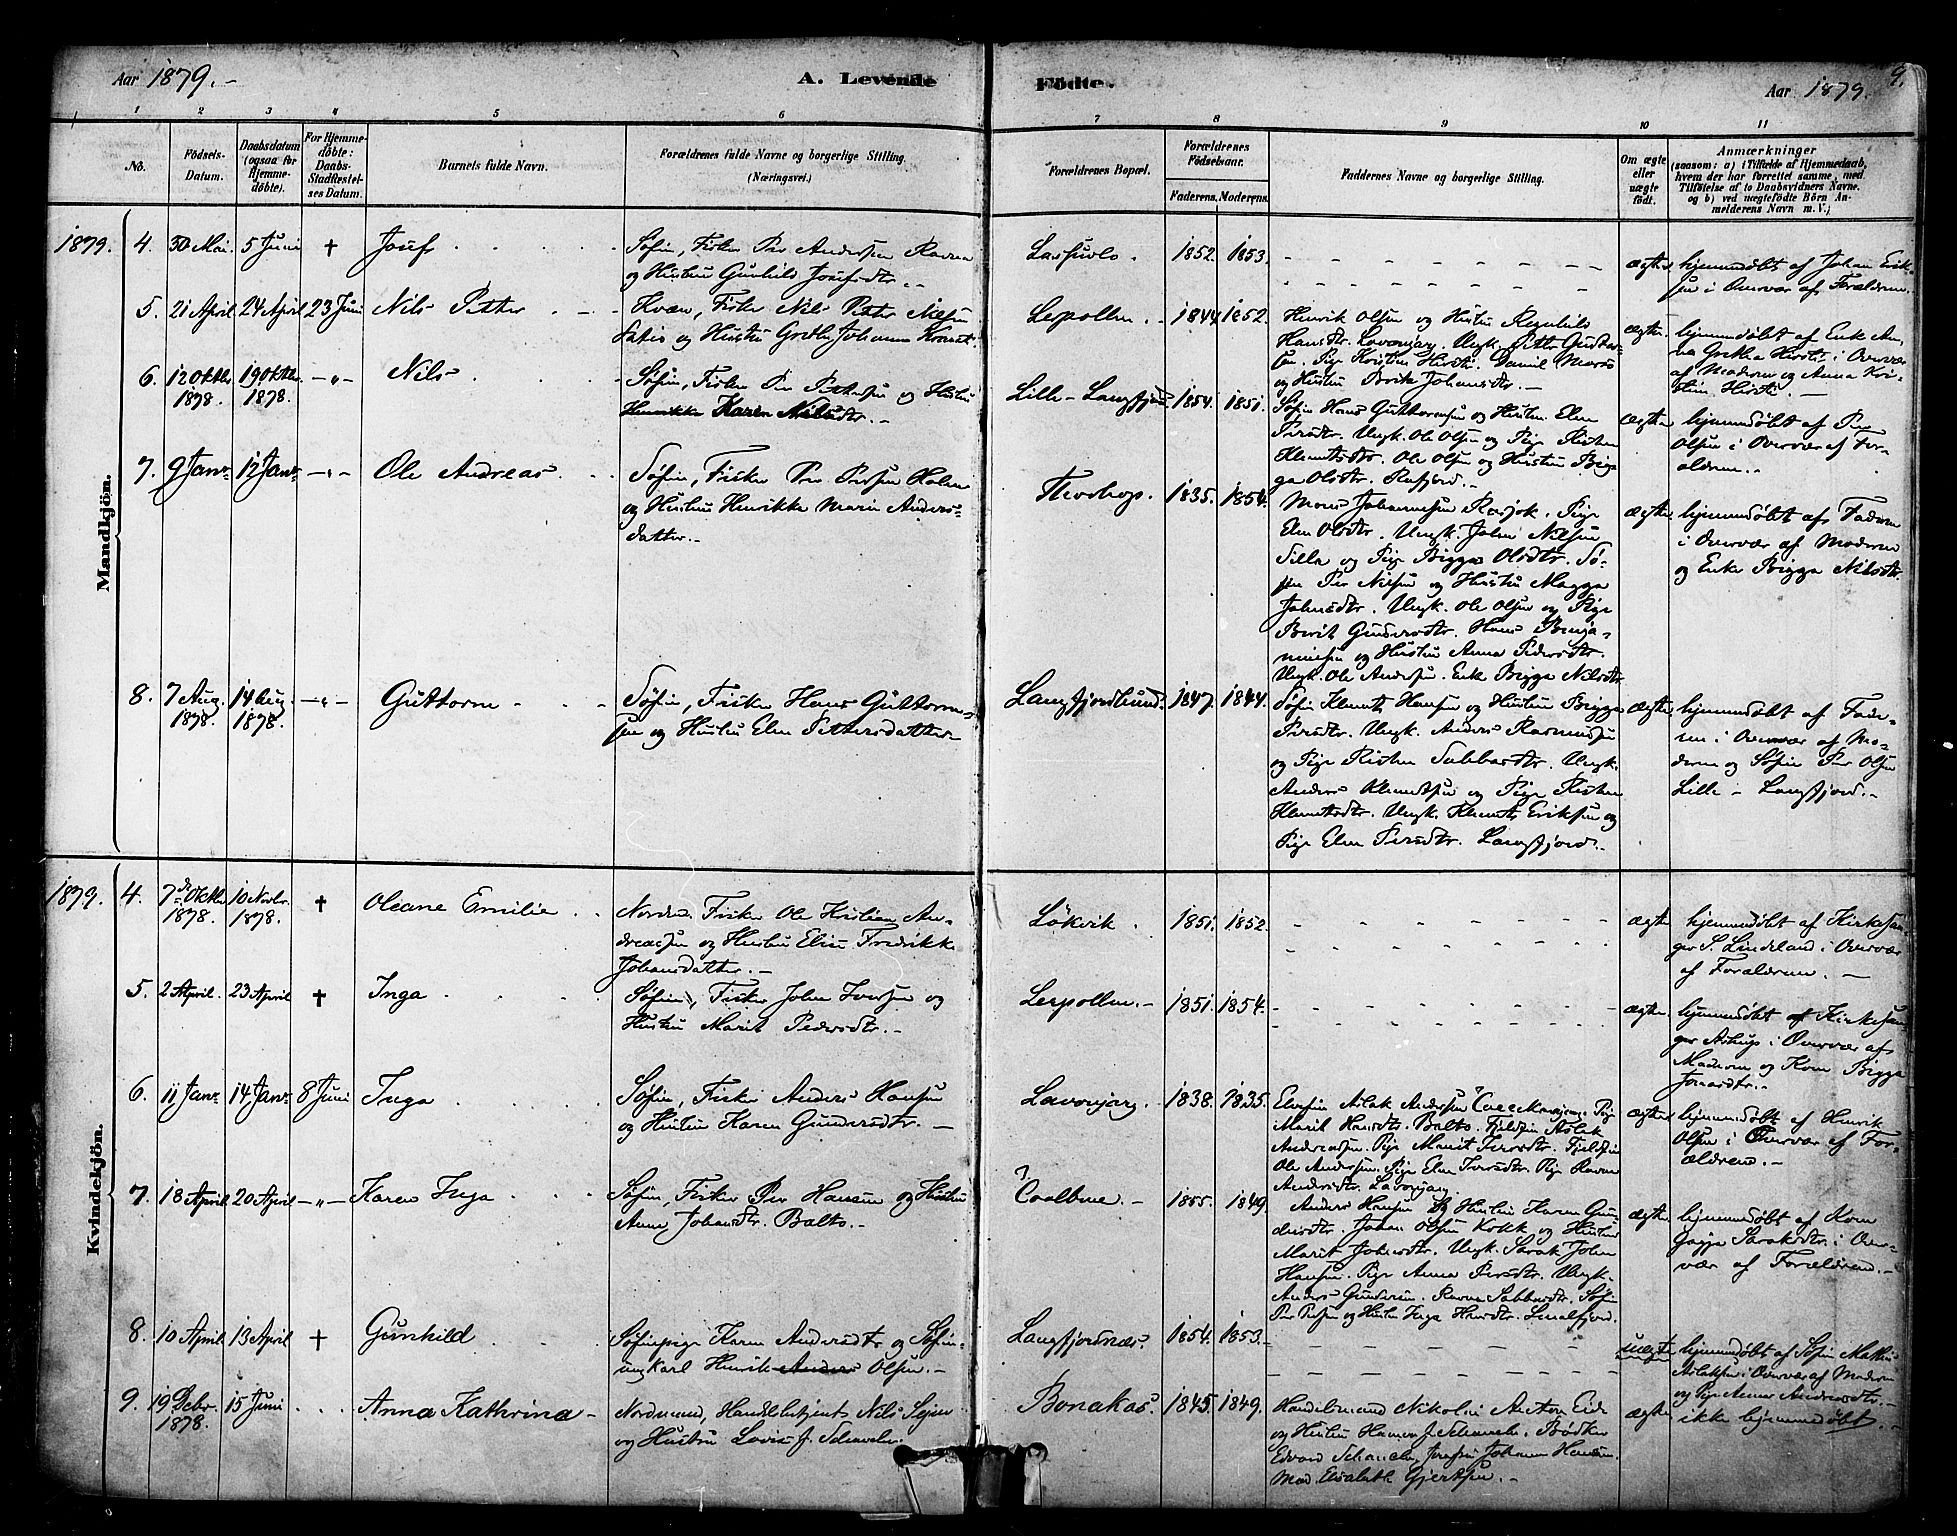 Aar 1879. –
A. Levende
Födte.
Aar 1879.
9.
1 2 3 4 5 6 7 8 9 10 11
No.
Födsels-
Datum.
Daabsdatum
(ogsaa for
Hjemme-
døbte).
For Hjemme-
døbte:
Daabs-
Stadfæstel-
ses Datum.
Barnets fulde Navn.
Forældrenes fulde Navne og borgerlige Stilling.
(Næringsvei.)
Forældrenes Bopæl.
Forældrenes
Födselsaar.
Faderens. Moderens.
Faddernes Navne og borgerlige Stilling.
Om ægte
eller
uægte
født.
Anmærkninger
(saasom: a) i Tilfælde af Hjemmedaab,
hvem der har forrettet samme, med
Tilføielse af to Daabsvidners Navne,
og b) ved uægtefödte Börn An-
melderens Navn m. V.)
Mandkjön.
1879. 4. 30 Mai. 5 Juni † Josef
Søfin, Fisker Per Andersen Ravna
og Hustru Gunhild Josefsdtr.
1852. 1853.
ægte.
hjemmedøbt af Johan Erik-
sen i Overvær af Forældrene.
5. 21 April 24 April 23 Juni Nils Petter
Kvæn, Fisker Nils Petter Nilsen
og Hustru Grethe Johanna
Lerpollen. 1844 1852.
Henrik Olsen og Hustru Ragnhild
Hansdtr. Lavonjarg. Ungk. Petter Gustav-
sen. Pige Kristine Hirsti. Daniel
og Hustru Brita Johansdtr.
ægte.
hjemmedøbt af Enke An-
na Gretha Hirsti i Overvær
af Moderen og Anna Kri-
stine Hirsti.
6. 12 Oktbr. 1878. 19 Oktbr. 1878. –"– Nils
Søfin, Fisker Per Pettersen og Hustru
Henrikke Karen Nilsdtr.
Lille-Langfjord 1854. 1851.
Søfin Hans Guttormsen og Hustru Elen
Persdtr. Ungk. Ole Olsen og Pige Kirsten
Klemetsdtr. Ole Olsen og Hustru Big-
ga Olsdtr.
ægte
hjemmedøbt af Per
Olsen i Overvær af For-
ældrene.
7. 9 Janr. 12 Janr. –"– Ole Andreas
Søfin, Fisker Per Persen Holm
og Hustru Henrikke Marie Anders-
datter.
1835. 1854.
Mons Johannesen. Pige
Elen Olsdtr. Ungk. John Nilsen
og Pige Bigga Olsdtr. Sø-
fin Per Nilsen og Hustru Magga
Johnsdtr. Ungk. Ole Olsen og Pige
Berit Gundersdtr. Hans Benja-
minsen og Hustru Anna Pedersdtr.
Ungk. Ole Andersen. Enke Bigga Nilsdtr.
ægte.
hjemmedøbt af Faderen
i Overvær af Moderen
og Enke Bigga Nilsdtr.
8. 7 Aug. 1878. 14 Aug. 1878. –"– Guttorm
Søfin, Fisker Hans Guttorm-
sen og Hustru Elen Pettersdatter
Langfjordbund. 1847. 1844.
Søfin Klemet Hansen og Hustru Bigga
Persdtr. Ungk. Anders Rasmussen
og Pige Kirsten Sabbasdtr. Ungk.
Anders Klemetsen og Pige Kirsten
Klemetsdtr. Ungk. Klemet Eriksen og
Pige Elen Persdtr. Langfjord.
ægte.
hjemmedøbt af Fade-
ren i Overvær af Mo-
deren og Søfin Per Olsen
Lille-Langfjord.
Kvindekjön.
1879. 4. 7de Oktbr. 1878. 10 Novbr. 1878. † Oleane Emilie
Nordm. Fisker Ole Kristian An-
dreassen og Hustru Elise Fredrikke
Johansdatter.
Løkvik. 1851. 1852.
ægte
hjemmedøbt af Kirkesan-
ger S. Lindeland i Overvær
af Forældrene.
5. 2 April. 23 April † Inga
Søfin, Fisker John Iversen og
Hustru Marit Pedersdtr.
Lerpollen. 1851. 1854.
ægte.
hjemmedøbt af Kirkesan-
ger i Overvær af
Moderen og Kone Bigga
6. 11 Janr. 14 Janr. 8 Juni Inga
Søfin, Fisker Anders Hansen
og Hustru Karen Gundersdtr.
Lavonjarg. 1838. 1835.
Elvefin Aslak Andersen Pige
Marit Hansdtr. Balto. Fjeldfin Aslak
Andersen. Pige Marit Iversdtr. Fjeldfin
Ole Andersen. Pige Elen Iversdtr. Pige Ravna
Andersdtr. Lavonjarg.
ægte
hjemmedøbt af Henrik
Olsen i Overvær af For-
ældrene.
7. 18 April 20 April –"– Karen Inga
Søfin, Fisker Per Hansen og Hustru
Anne Johansdtr. Balto.
1855. 1849.
Anders Hansen og Hustru Karen Gun-
dersdtr. Johan Olsen Kokk og Hustru
Marit Johnsdtr. Ungk. Sarak John
Hansen. Pige Anna Persdtr. Ungk.
Anders Gundersen. Ravna Sabbasdtr. Søfin
Per Persen og Hustru Inga Hansdtr. Smalfjord.
ægte.
hjemmedøbt af Kone
Gagga Saraksdtr. i Over-
vær af Forældrene.
8. 10 April 13 April † Gunhild
Søfinpige Karen Andersdtr og Søfin-
ungkarl Henrik Anders Olsen.
Langfjordnæs. 1854. 1853.
uægte
hjemmedøbt af Søfin Mathis
Aslaksen i Overvær af Moderen
og Pige Anna Andersdtr.
9. 19 Decbr. 1878. 15 Juni Anna Kathrina
Nordmand, Handelsbetjent Nils
og Hustru Lovise J. Schanche.
Bonakas. 1845. 1849.
Handelsmand Nikolai Anton Eide
og Hustru Hanna J. Schanche. Bødker
Edvard Schanche, Johanna Hansen
Mad. Elisabeth Gjertsen.
ægte.
ikke hjemmedøbt.